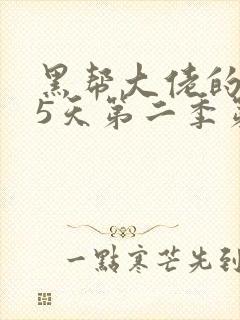 黑帮大佬的
5天第二季第
一點寒芒先到